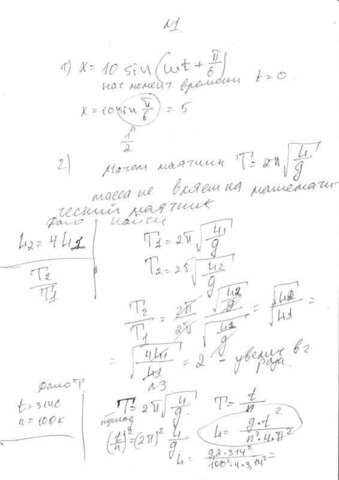 №1
1) x = 10 sin (ωt + π/6)
нач момент времени t = 0
x = 10 sin π/6 = 5
1/2
2) Матем маятник T = 2π√(L/g)
масса не влияет на математи
ческий маятник
Дано найти
L2 = 4L1
T2/T1
T1 = 2π√(L1/g)
T2 = 2π√(L2/g)
T2/T1 = 2π/2π √(L2/g)/√(L1/g) = √(L2/L1) =
= √(4L1/L1) = 2 - увелич в 2
раза.
№3
Дано
t = 314с
n = 100к
T = 2π√(L/g) T = t/n
период
(t/n)² = (2π)² L/g
L = g·t²/n²·4·π²
L = 9,8·314²/100²·4·3,14² =